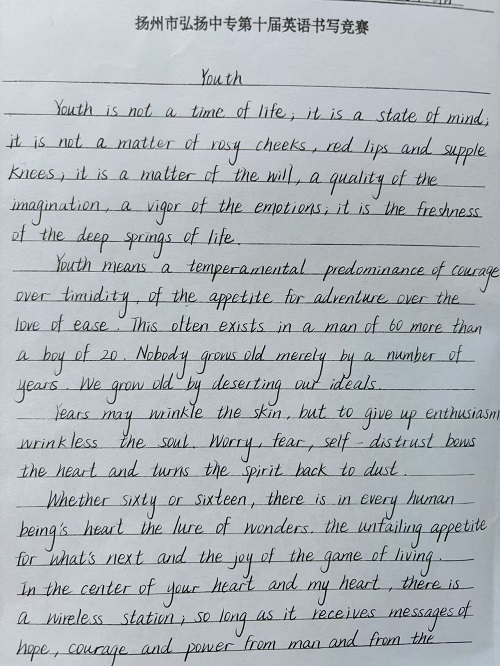 扬州市弘扬中专第十届英语书写竞赛
Youth
Youth is not a time of life; it is a state of mind;
it is not a matter of rosy cheeks, red lips and supple
knees; it is a matter of the will, a quality of the
imagination, a vigor of the emotions; it is the freshness
of the deep springs of life.
Youth means a temperamental predominance of courage
over timidity, of the appetite for adventure over the
love of ease. This often exists in a man of 60 more than
a boy of 20. Nobody grows old merely by a number of
years. We grow old by deserting our ideals.
Years may wrinkle the skin, but to give up enthusiasm
wrinkless the soul. Worry, fear, self-distrust bows
the heart and turns the spirit back to dust.
Whether sixty or sixteen, there is in every human
being's heart the lure of wonders. the unfailing appetite
for what's next and the joy of the game of living.
In the center of your heart and my heart, there is
a wireless station; so long as it receives messages of
hope, courage and power from man and from the